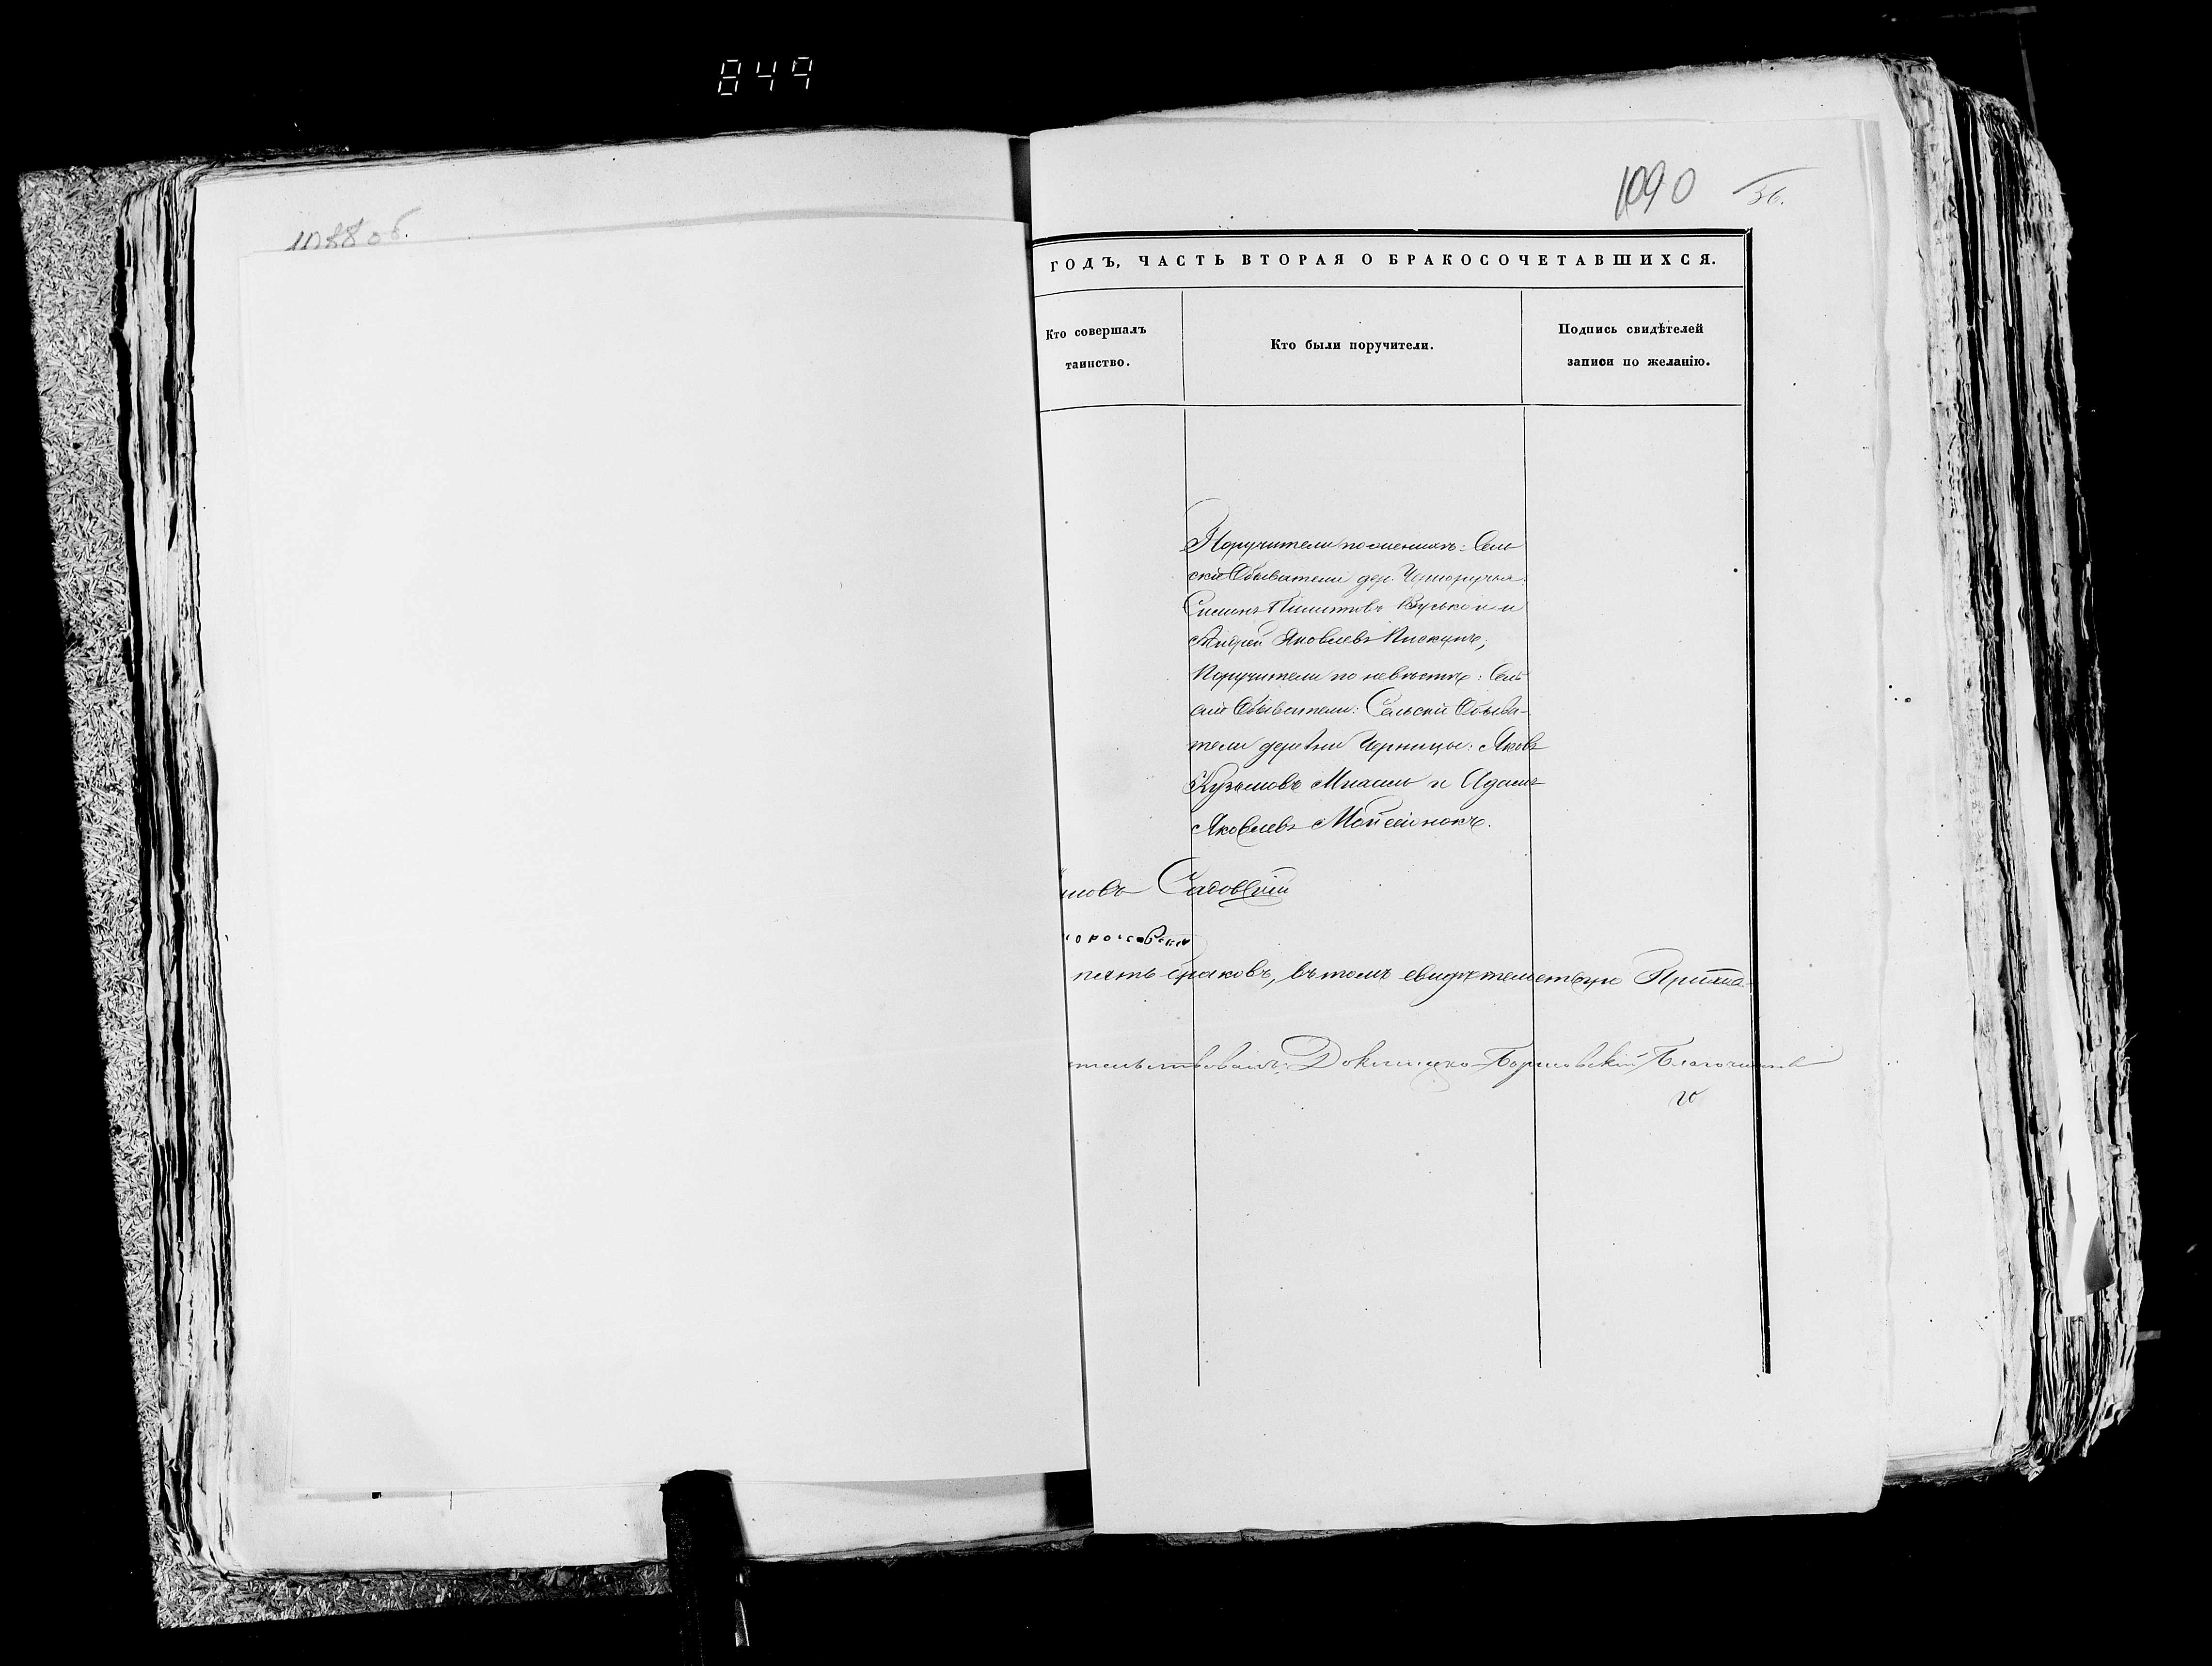 849
1088 об.
1090 36.
ГОДЪ, ЧАСТЬ ВТОРАЯ О БРАКОСОЧЕТАВШИХСЯ.
Кто совершалъ
таинство.
Кто были поручители.
Подпись свидѣтелей
записи по желанію.
Поручители по женихѣ: Сель
скіе Обыватели дер.
Симонъ и
Андрей Яковлевъ Пискунъ;
Поручители по невѣстѣ: Сель
скіе Обыватели: Сельскіе Обыва-
тели деревни Черницы: Яковъ
Кузьмовъ и Адамъ
Яковлевъ Мойсеёнокъ.
Садовскій
пять браковъ, въ томъ свидѣтельствую
Докшицко-Борисовскій Благочинный